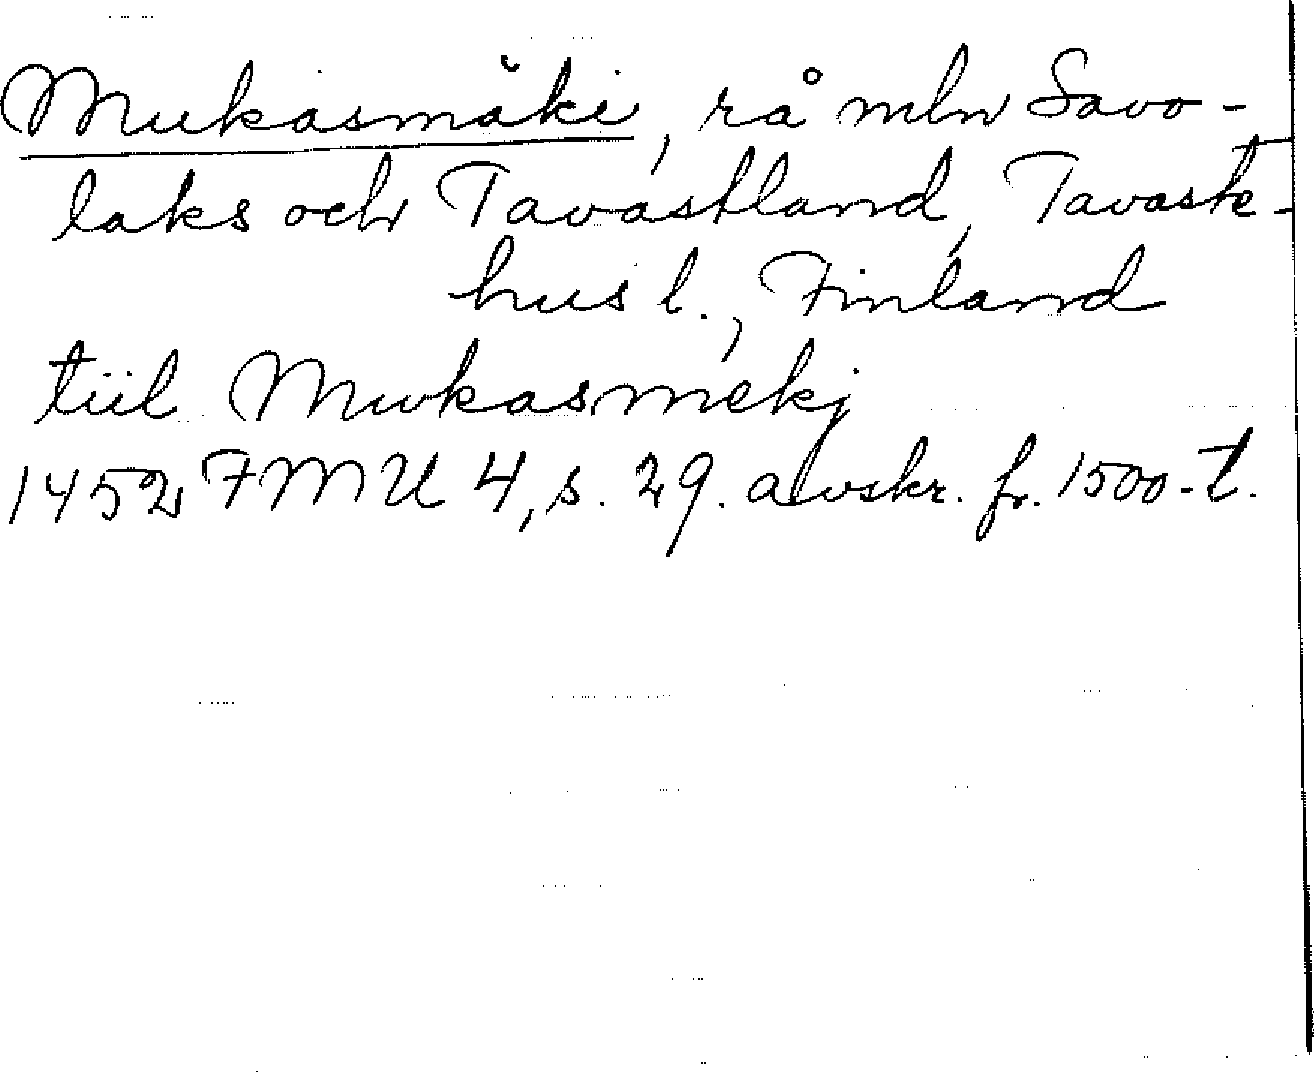 Mukasmäki, rå mln Savo-
laks och Tavastland, Tavaste-
hus l., Finland
tiil Mwkasmekj
1452 FMU 4, s. 29. avskr. fr. 1500-t.